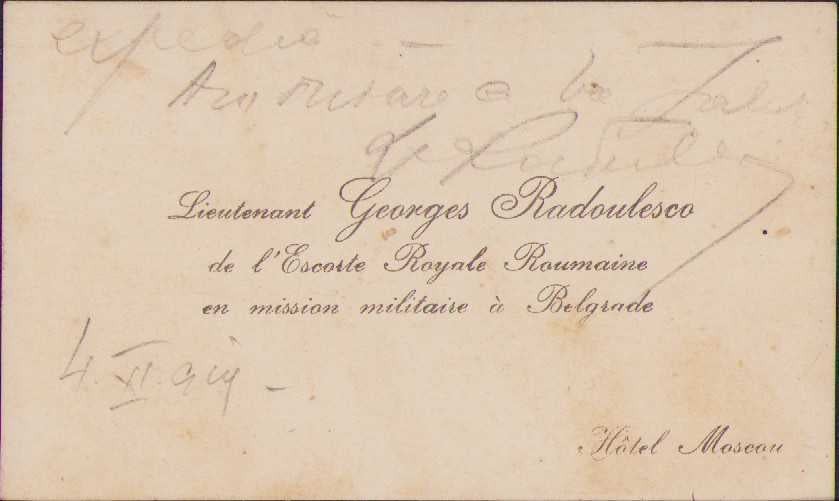 expédié
a la
Lieutenant Georges Radoulesco
de l'Escorte Royale Roumaine
en mission militaire à Belgrade
4. XI.
Hôtel Moscou